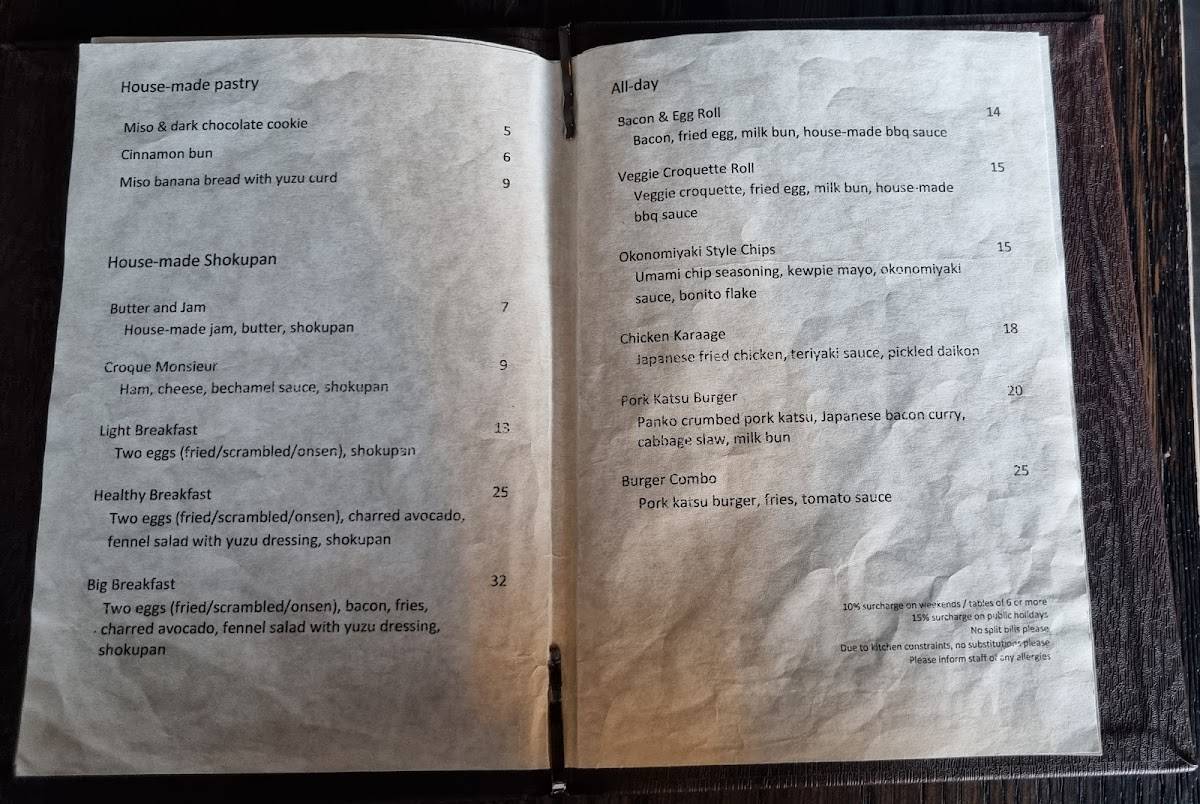 House-made pastry
Miso & dark chocolate cookie 5
Cinnamon bun 6
Miso banana bread with yuzu curd 9
House-made Shokupan
Butter and Jam 7
House-made jam, butter, shokupan
Croque Monsieur 9
Ham, cheese, bechamel sauce, shokupan
Light Breakfast 13
Two eggs (fried/scrambled/onsen), shokupan
Healthy Breakfast 25
Two eggs (fried/scrambled/onsen), charred avocado,
fennel salad with yuzu dressing, shokupan
Big Breakfast 32
Two eggs (fried/scrambled/onsen), bacon, fries,
charred avocado, fennel salad with yuzu dressing,
shokupan
All-day
Bacon & Egg Roll 14
Bacon, fried egg, milk bun, house-made bbq sauce
Veggie Croquette Roll 15
Veggie croquette, fried egg, milk bun, house-made
bbq sauce
Okonomiyaki Style Chips 15
Umami chip seasoning, kewpie mayo, okonomiyaki
sauce, bonito flake
Chicken Karaage 18
Japanese fried chicken, teriyaki sauce, pickled daikon
Pork Katsu Burger 20
Panko crumbed pork katsu, Japanese bacon curry,
cabbage slaw, milk bun
Burger Combo 25
Pork katsu burger, fries, tomato sauce
10% surcharge on weekends / tables of 6 or more
15% surcharge on public holidays
No split bills please
Due to kitchen constraints, no substitutions please
Please inform staff of any allergies